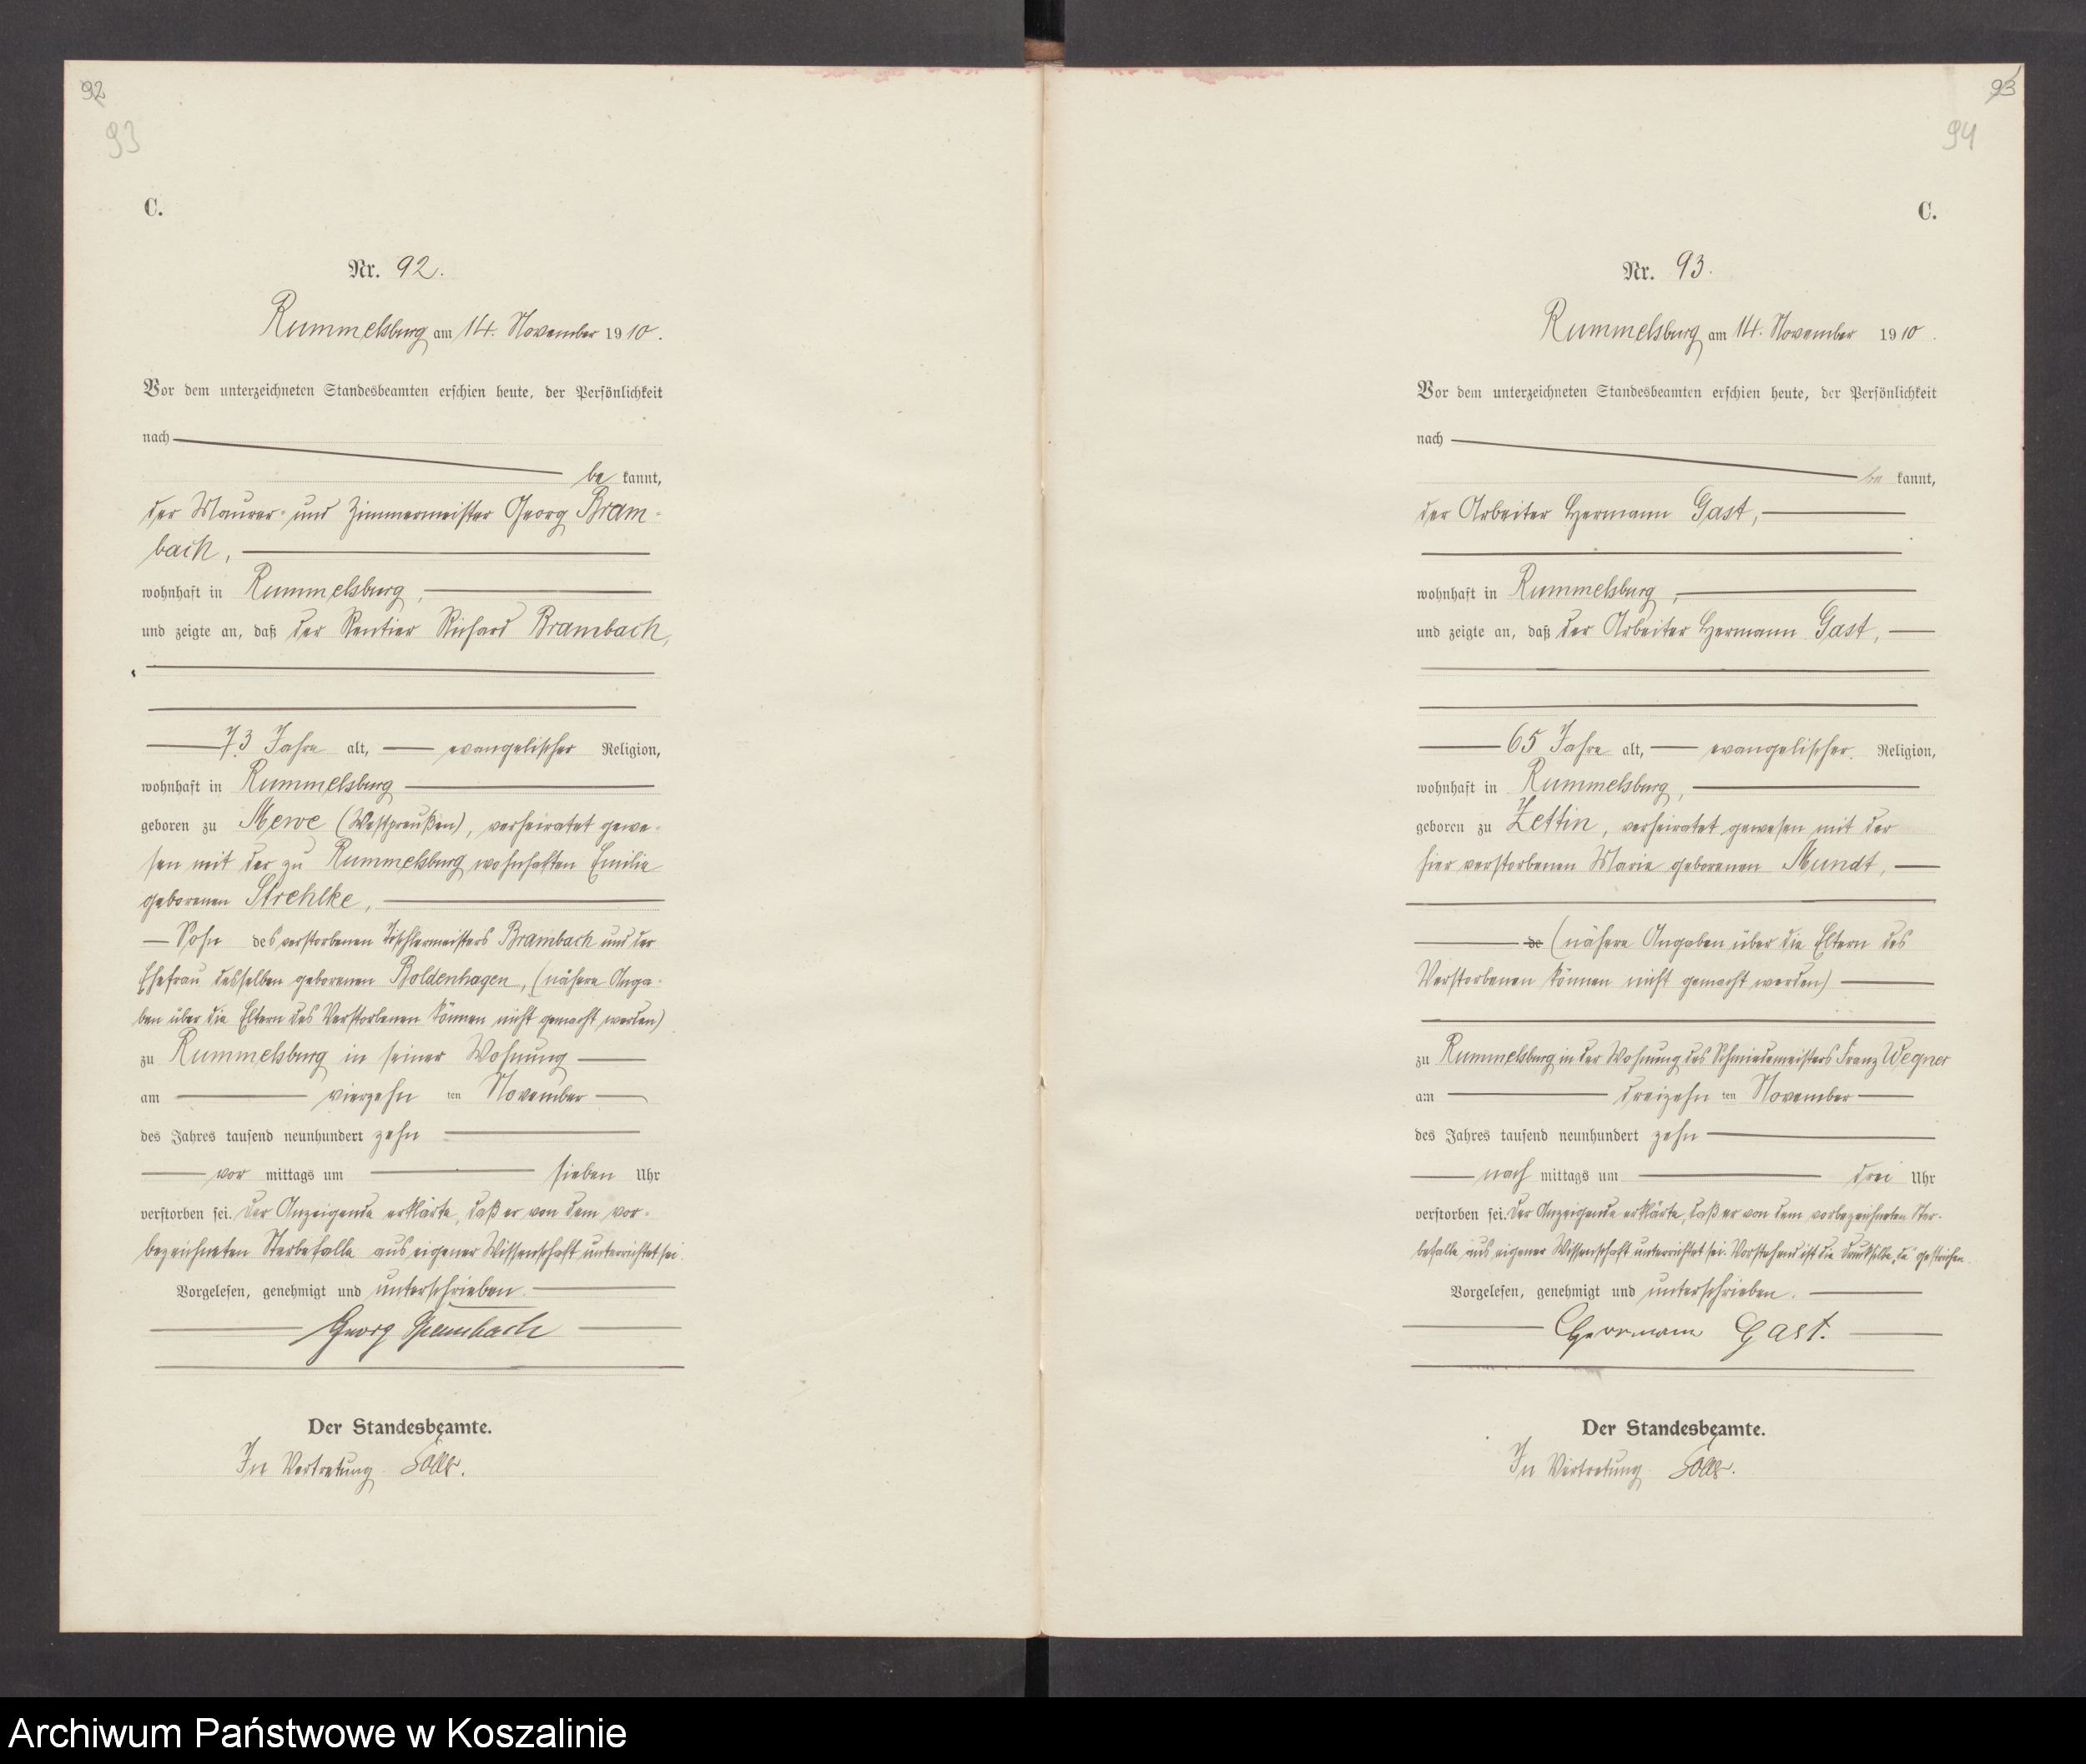 92
93
C.
Nr. 92.
Rummelsburg am 14. November 1910.
Vor dem unterzeichneten Standesbeamten erschien heute, der Persönlichkeit
nach
be kannt,
der Maurer- und Zimmermeister Georg Bram-
bach,
wohnhaft in Rummelsburg,
und zeigte an, daß der Rentier Richard Brambach,
73 Jahre alt, evangelischer Religion,
wohnhaft in Rummelsburg
geboren zu Mewe (Westpreußen), verheiratet gewe-
sen mit der zu Rummelsburg wohnhaften Emilie
geborenen Strehlke,
Sohn des verstorbenen Tischlermeisters Brambach und der
Ehefrau desselben geborenen Boldenhagen, (nähere Anga-
ben über die Eltern des Verstorbenen können nicht gemacht werden)
zu Rummelsburg in seiner Wohnung
am vierzehn ten November
des Jahres tausend neunhundert zehn
vor mittags um sieben Uhr
verstorben sei. Der Anzeigende erklärte, daß er von dem vor-
bezeichneten Sterbefalle aus eigener Wissenschaft unterrichtet sei.
Vorgelesen, genehmigt und unterschrieben.
Georg Brambach
Der Standesbeamte.
In Vertretung
93
94
C.
Nr. 93.
Rummelsburg am 14. November 1910.
Vor dem unterzeichneten Standesbeamten erschien heute, der Persönlichkeit
nach
be kannt,
der Arbeiter Hermann Gast,
wohnhaft in Rummelsburg,
und zeigte an, daß der Arbeiter Hermann Gast,
65 Jahre alt, evangelischer Religion,
wohnhaft in Rummelsburg,
geboren zu Zettin, verheiratet gewesen mit der
hier verstorbenen Marie geborenen Mundt,
de (nähere Angaben über die Eltern des
Verstorbenen können nicht gemacht werden)
zu Rummelsburg in der Wohnung des Schmiedemeisters Franz Wegner
am dreizehn ten November
des Jahres tausend neunhundert zehn
nach mittags um drei Uhr
verstorben sei. Der Anzeigende erklärte, daß er von dem vorbezeichneten Ster-
befalle aus eigener Wissenschaft unterrichtet sei. Vorstehend ist die Drucksilbe „de" gestrichen.
Vorgelesen, genehmigt und unterschrieben.
Herrmann Gast.
Der Standesbeamte.
In Vertretung
Archiwum Państwowe w Koszalinie